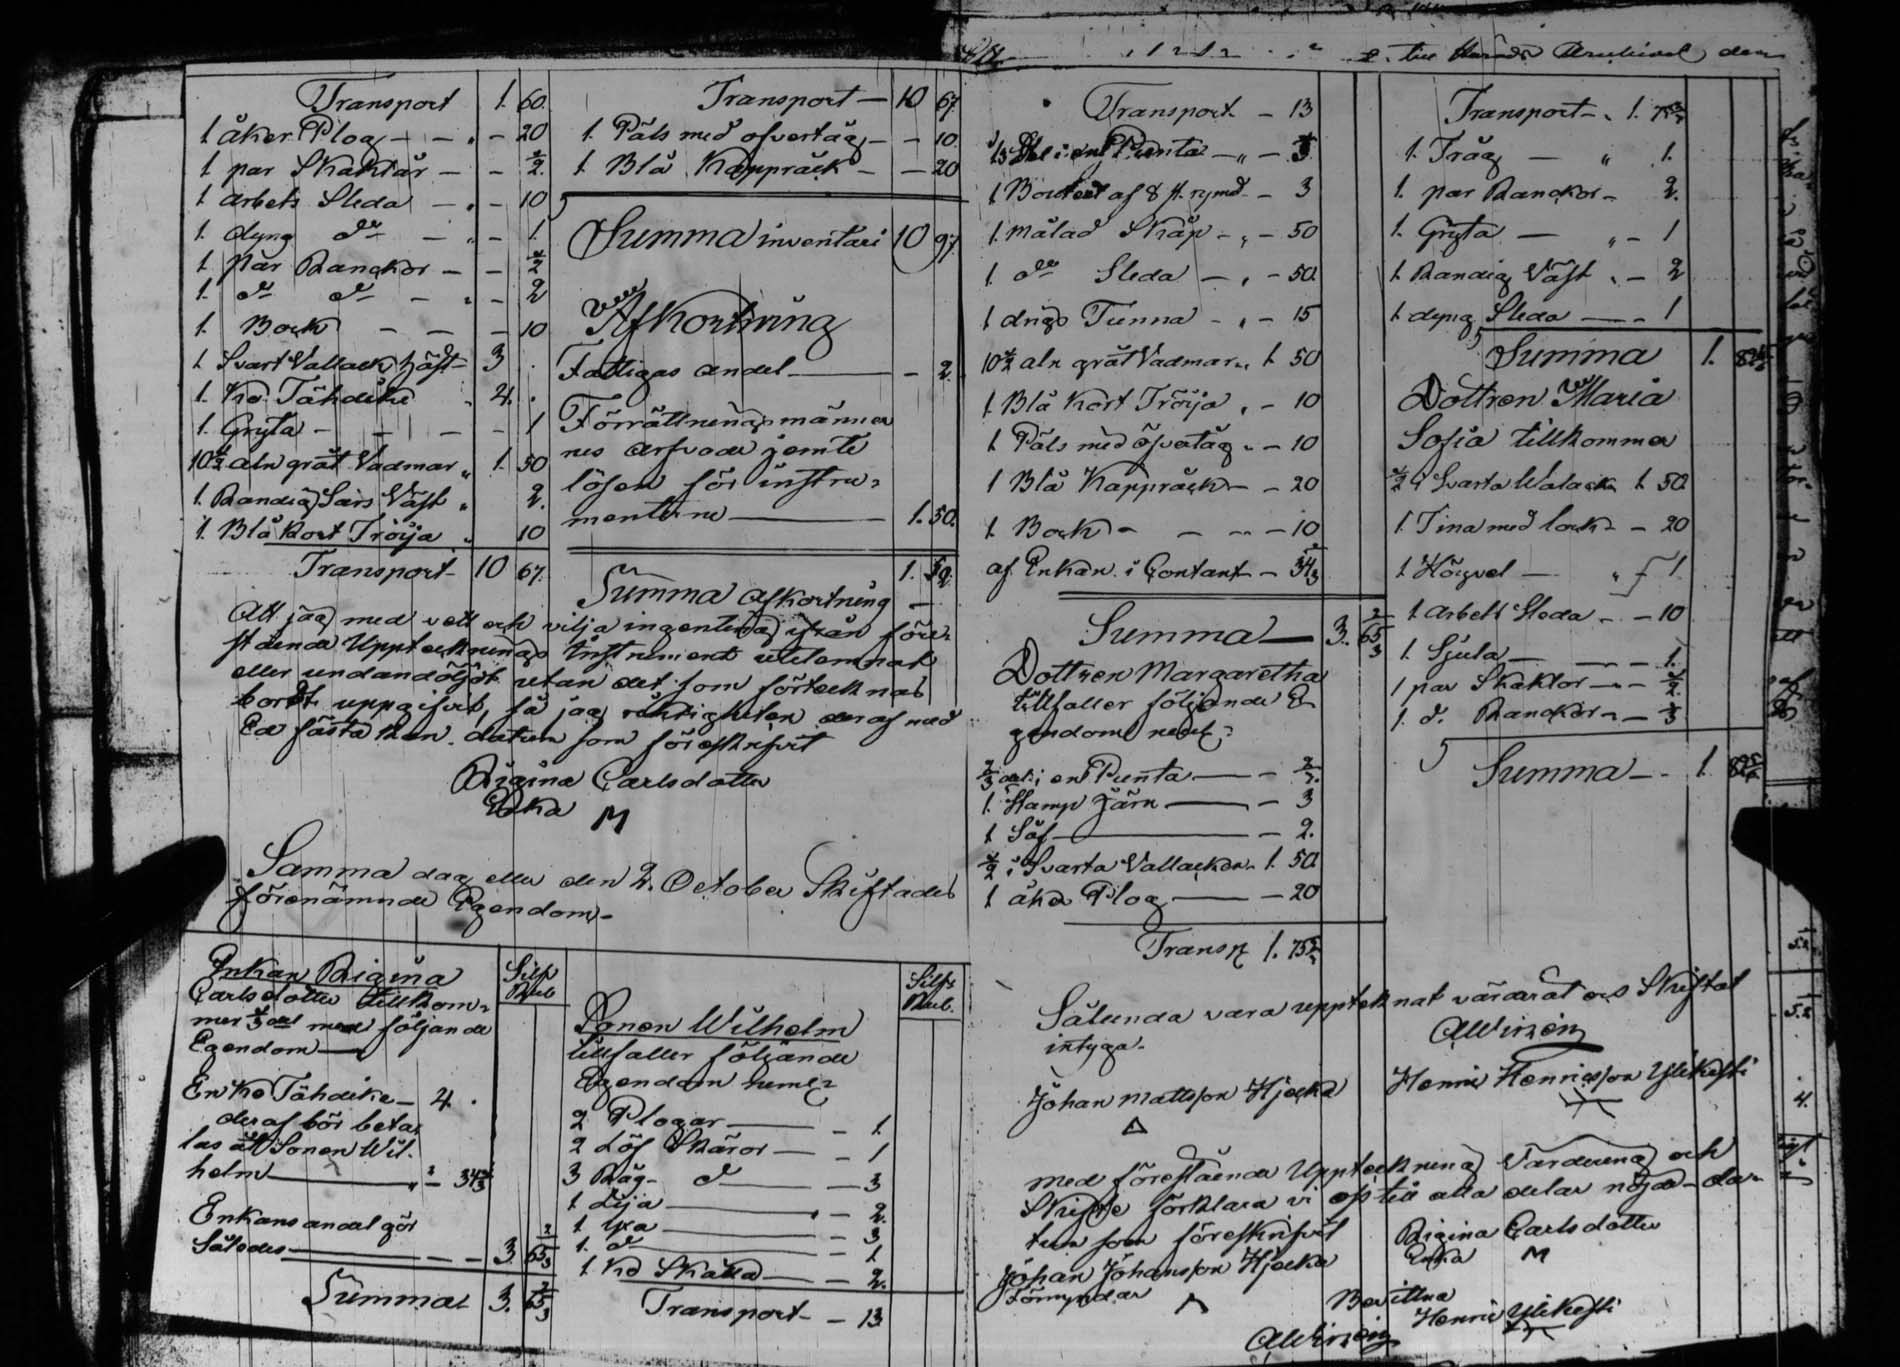 Transport 1. 60.
1. åker Plog — — „ — 20
1 par Skaklar — — ½.
1 arbets Sleda — „ — 10
1. dyng do — „ — 1.
1 par Ranckor — — ½
1. do do — „ — 2
1 Bock — — — 10
1 Svart Vallack häst — 3 .
1. Ko Tähdike „ 4. .
1. Gryta — — — 1
10½ aln gråt Vadmar „ 1. 50
1. Randig Sars Väst „ 2.
1. Blå Kort Tröija „ 10
Transport — 10 67.
Transport — 10 67.
1. Päls med öfvertåg — — 10.
1. Blå Kappräck — — 20
Summa inventari 10 97.
Afkortning
Fattigas andel — — 2.
Förrättnings männer
nes arfvode jemte
lösen för instru-
menterne — 1. 50.
Summa afkortning — 1. 52.
Att jag med vett och vilja ingenting ifrån före-
stående Upptecknings instrument utelemnat
eller undandölgt utan det som förtecknas
bordt uppgifvit, så jag rigtigheten deraf med
Ed fästa kan. datum som föreskrifvit
Rigina Carlsdotter
Enka M
Samma dag eller den 2. October Skiftades
förenämnde Egendom.
Enkan Rigina
Carlsdotter tillkom-
mer ⅓ del med följande
Egendom —
Silf
Rub
En Ko Tähdike — 4. .
deraf bör beta-
las åt Sonen Wil-
helm — „ — 34⅓
Enkans andel gör
Således — — 3. 65⅔
Summa 3. 65⅔
Sonen Wilhelm
tillfaller följande
Egendom neml:
Silf:
Rub.
2 Plogar — — 1.
2 Löf Skäror — — 1
3 Råg- do — — 3
1 Lija — — 2.
1 Yxa — — 3
1. do — — 1
1 Ko Skälla — — 2.
Transport — — 13
till Härads Archivet den
Transport — — 13
⅓ Del i en Punta — „ — ⅓
1 Bouteil af 8 st. rymd — 3
1. målad Skåp — „ — 50
1. do Sleda — „ — 50.
1 drigs Tunna — „ — 15
10½ aln gråt Vadmar „ 1. 50
1. Blå Kort Tröija „ — 10
1 Päls med öfvertåg „ — 10
1 Blå Kappräck — — 20
1. Bock — — — 10
af Enkan i Contant — 34⅓
Summa — 3. 65⅔
Dottren Margaretha
tillfaller följande E-
gendom neml:
⅔ del i en Punta — — ⅔.
1. Stamp Järn — — 3
1 Såf — — 2.
½ i Svarta Vallacken 1. 50
1 åker Plog — — 20
Transp. 1. 75⅔
Transport — „ 1. 75⅔
1. Tråg — „ 1.
1. par Ranckor — 2.
1. Gryta — „ — 1
1. Randig Väst „ — 2
1. dyng Sleda — — 1
Summa 1.
Dottren Maria
Sofia tillkommer
½ i Svarta Walack 1. 50
1. Tina med lock — — 20
1 — „ 1.
1 arbets Sleda — — 10
1. Sjula — — 1.
1 par Skaklor — — ½.
1. do. Ranckor — — ⅓
Summa — . 1.
Sålunda vara upptecknat värderat och Skiftat
intyga.
Johan Mattsson Hjocka
Henric Henricsson Ylikesti
Med förestående Uppteckning Värdering och
Skifte förklara vi oss till alla delar nöjde — da-
tum som föreskrifvit
Rigina Carlsdotter
Enka M
Johan Johansson Hjocka
Förmyndar
Bevittna
Henric Ylikesti